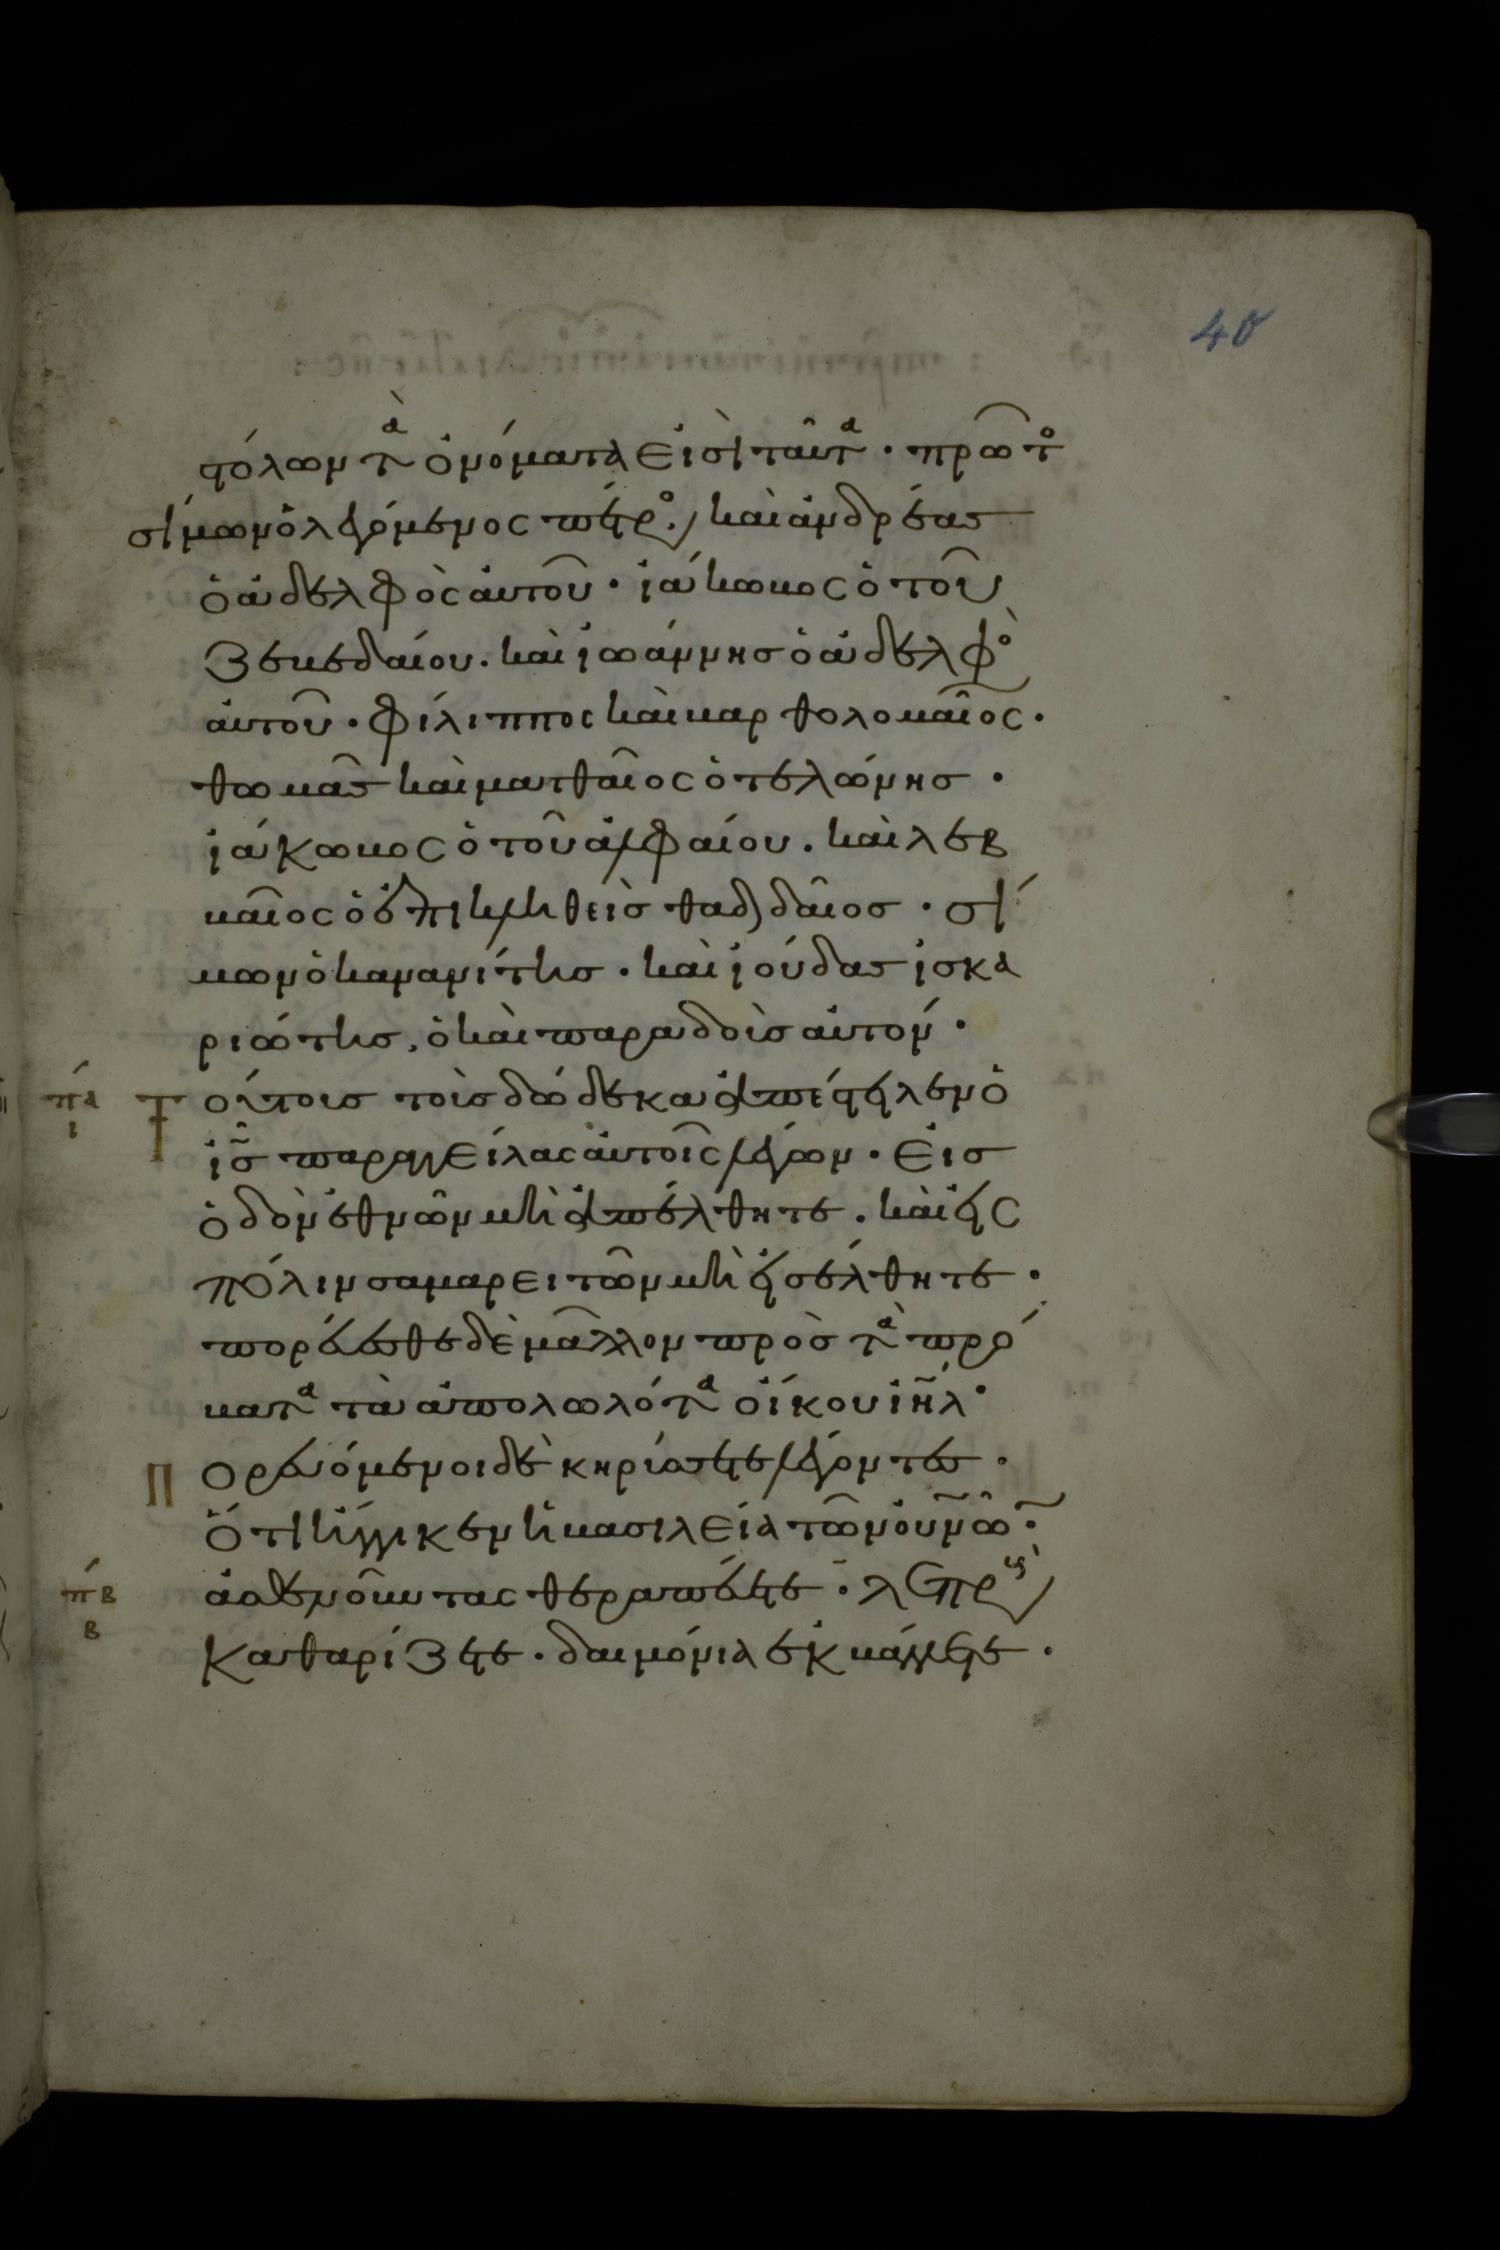 40
στόλων τὰ ὀνόματα εἰσὶ ταῦτα· πρῶτο
σίμων ὁ λεγόμενος πέτρο· καὶ ἀνδρέας
ὁ ἀδελφὸς αὐτοῦ· ἰάκωβος ὁ τοῦ
ζεβεδαίου. καὶ ἰωάννησ ὁ ἀδελφὸ
αὐτοῦ· φίλιππος καὶ βαρθολομαῖος·
θωμᾶς καὶ ματθαῖος ὁ τελώνησ·
ἰάκωβος ὁ τοῦ ἀλφαίου. καὶ λεβ
βαῖος ὁ ἐπικληθεὶσ θαδδαῖοσ· σί
μων ὁ κανανίτησ· καὶ ἰούδας ἰσκα
ριώτησ, ὁ καὶ παραδοὺσ αὐτόν·
πα Τούτοισ τοὺσ δώδεκα ἀπέστειλεν ὁ
ι ἰς̃ παραγγείλας αὐτοῖς λέγων· εἰσ
ὁδὸν ἐθνῶν μὴ ἀπέλθητε. καὶ εἰς
πόλιν σαμαρειτῶν μὴ εἰσέλθητε·
πορεύεσθε δὲ μᾶλλον πρὸσ τὰ πρό
βατα τὰ ἀπολωλότα οἴκου ἰη̃λ·
Πορευόμενοι δὲ κηρύσσετε λέγοντες·
ὅτι ἤγγικεν ἡ βασιλεία τῶν οὐνω̃·
πβ ἀσθενοῦντας θεραπεύετε· λεπρ
β καθαρίζετε· δαιμόνια ἐκβάλλετε·